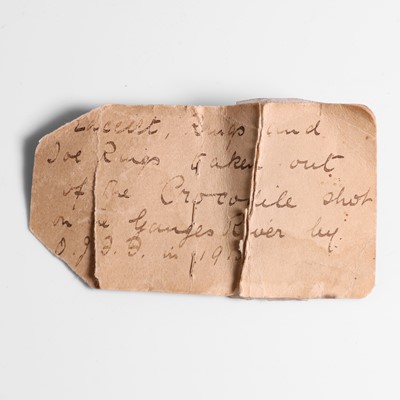 Rings and
Toe Rings taken out
of the Crocodile shot
on the Ganges River by
in 19